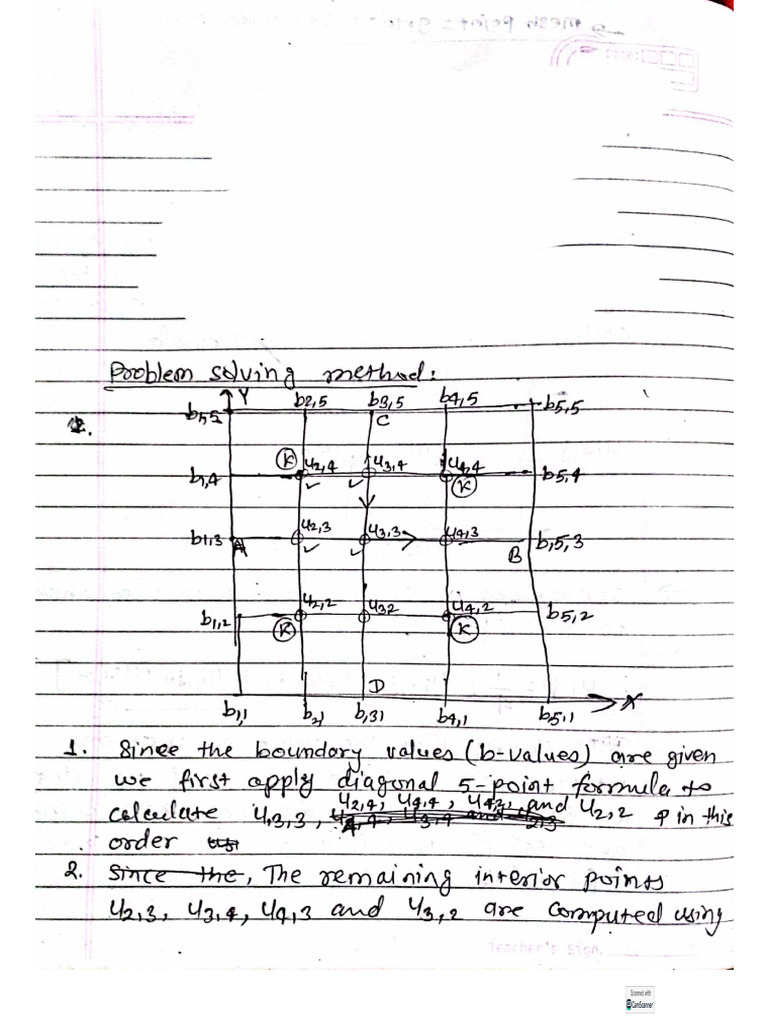 Problem solving method:
Y
b2,5 b3,5 b4,5 b5,5
C
b1,4 K u2,4 u3,4 u4,4 K b5,4
b1,3 A u2,3 u3,3 u4,3 B b,5,3
b1,2 K u2,2 u32 u4,2 K b5,2
D
X
b1,1 b4,1 b5,1
1. Since the boundary values (b-values) are given
we first apply diagonal 5-point formula to
u2,4, u4,4, u4,2, and
calculate u,3,3, u2,2 in this
order
2. Since the, The remaining interior points
u2,3, u3,4, u4,3 and u3,2 are computed using
Teacher's Sign.
Scanned with
CamScanner